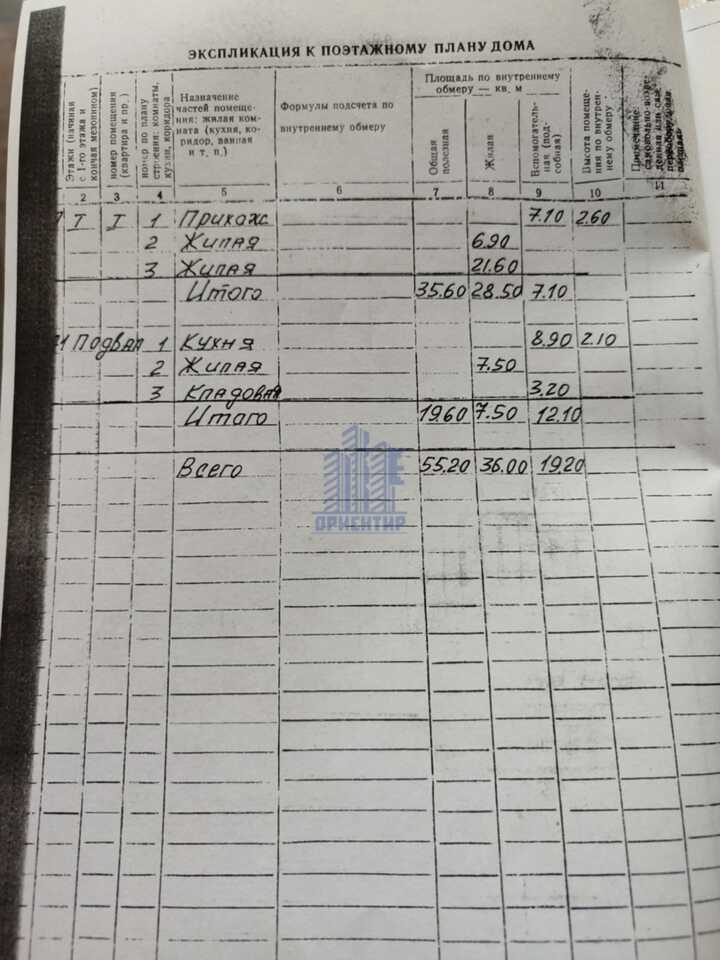 ЭКСПЛИКАЦИЯ К ПОЭТАЖНОМУ ПЛАНУ ДОМА
Этажи (начиная
с 1-го этажа и
кончая мезонином)
номер помещения
(квартира и пр.)
номер по плану
строения: комнаты,
кухни, коридора
Назначение
частей помеще-
ния: жилая ком-
ната (кухня, ко-
ридор, ванная
и т. п.)
Формулы подсчета по
внутреннему обмеру
Площадь по внутреннему
обмеру — кв. м
Общая
полезная
Жилая
Вспомогатель-
ная (под-
собная)
Высота помеще-
ния по внутрен-
нему обмеру
Примечание:
2 3 4 5 6 7 8 9 10 11
I I 1 Прихож 7.10 2.60
2 Жилая 6.90
3 Жилая 21.60
Итого 35.60 28.50 7.10
Подвал 1 Кухня 8.90 2.10
2 Жилая 7.50
3 Кладовая 3.20
Итого 19.60 7.50 12.10
Всего 55.20 36.00 19.20
ОРИЕНТИР